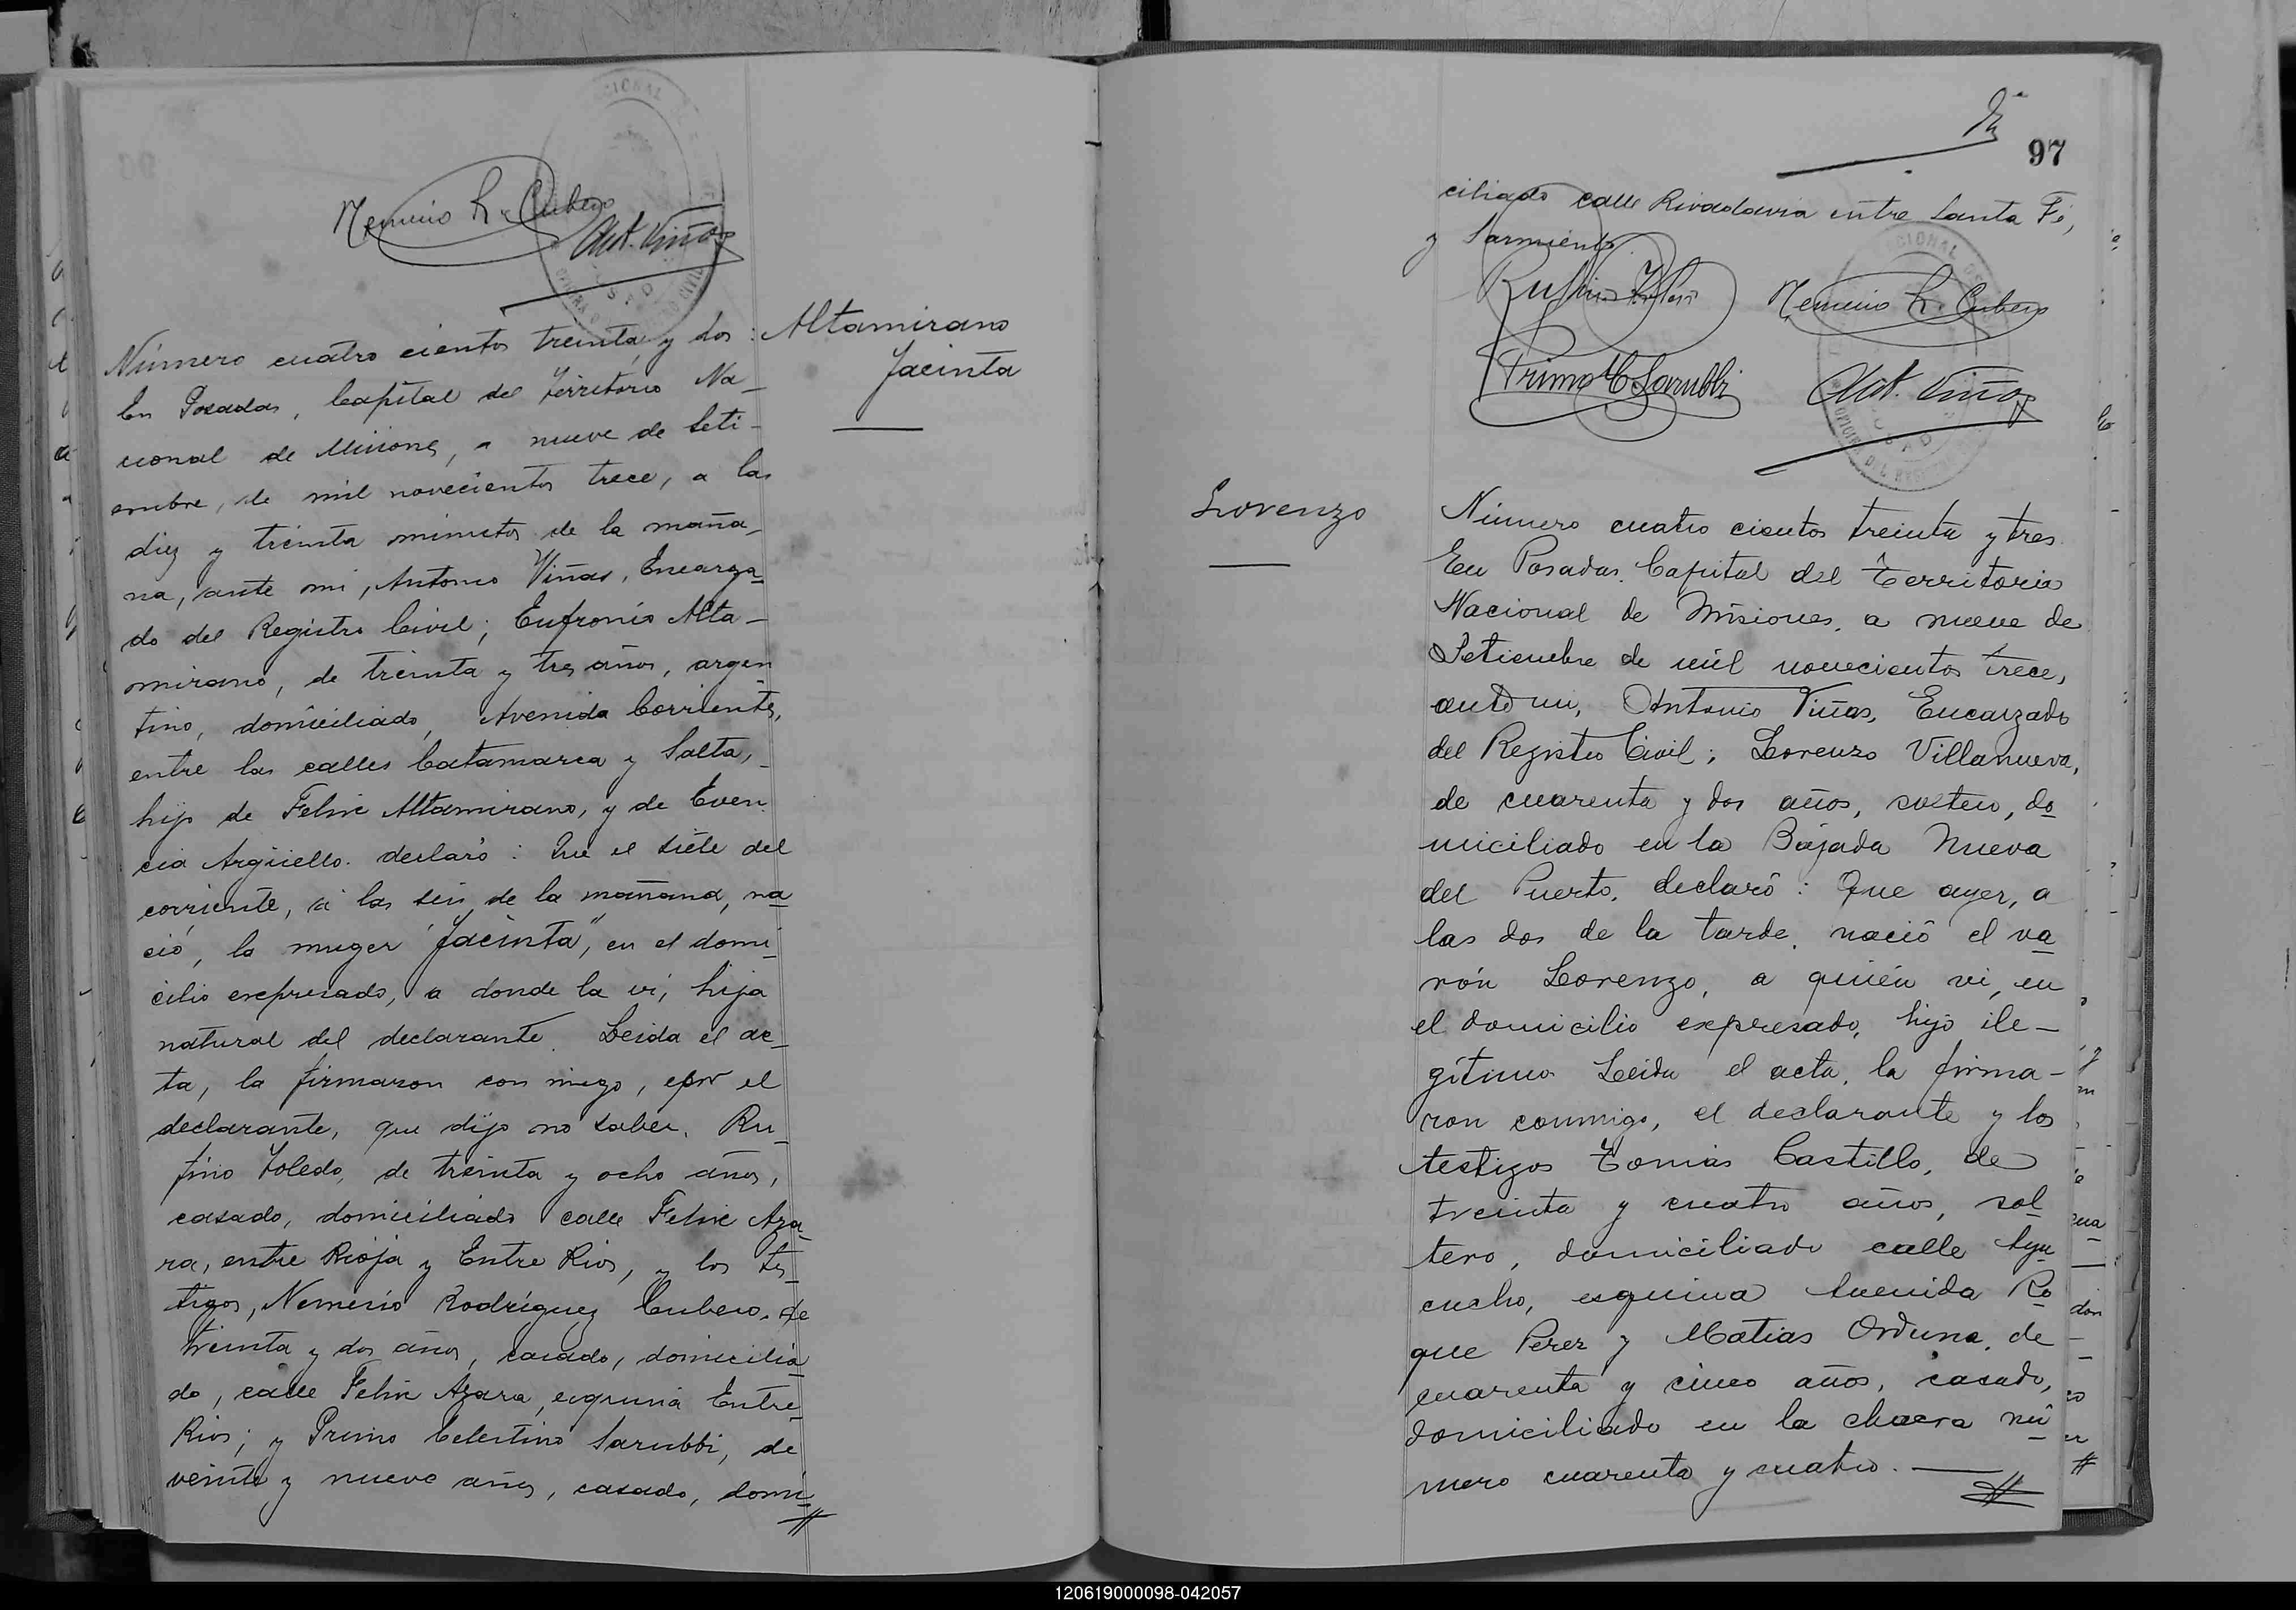 Nemecio R. Cubero
Ant. Viñas
Altamirano
Jacinta
Número cuatro cientos treinta y dos:
En Posadas, Capital del Territorio Na-
cional de Misiones, a nueve de Seti-
embre, de mil novecientos trece, a las
diez y treinta minutos de la maña-
na, ante mi, Antonio Viñas, Encarga-
do del Registro Civil; Eufronio Alta-
mirano, de treinta y tres años, argen-
tino, domiciliado, Avenida Corrientes,
entre las calles Catamarca y Salta,
hijo de Felix Altamirano, y de Even-
cia Argüello. declaró: Que el siete del
corriente, á las seis de la mañana, na-
ció, la muger "Jacinta", en el domi-
cilio expresado, a donde la ví, hija
natural del declarante. Leida el ac-
ta, la firmaron con migo, por el
declarante, que dijo no saber, Ru-
fino Toledo, de treinta y ocho años,
casado, domiciliado calle Felix Aza-
ra, entre Rioja y Entre Rios, y los tes-
tigos, Nemecio Rodríguez Cubero, de
treinta y dos años, casado, domicilia-
do, calle Felix Azara, esquina Entre-
Rios; y Primo Celestino Sarubbi, de
veinte y nueve años, casado, domi-
97
ciliado calle Rivadavia entre Santa Fé,
y Sarmiento
Rufino Toledo
Nemecio R. Cubero
Primo C. Sarubbi
Ant. Viñas
Lorenzo
Número cuatro cientos treinta y tres
En Posadas. Capital del Territorio
Nacional de Misiones, a nueve de
Setiembre de mil novecientos trece,
ante mi, Antonio Viñas, Encargado
del Registro Civil; Lorenzo Villanueva,
de cuarenta y dos años, soltero, do-
miciliado en la Bajada Nueva
del Puerto, declaró: Que ayer, a
las dos de la tarde, nació el va-
rón Lorenzo, a quién vi, en
el domicilio expresado, hijo ile-
gítimo Leida el acta, la firma-
ron conmigo, el declarante y los
testigos Tomás Castillo, de
treinta y cuatro años, sol-
tero, domiciliado calle Aya-
cucho, esquina Avenida Ro-
que Perez y Matias Orduna, de
cuarenta y cinco años, casado,
domiciliado en la chacra nú-
mero cuarenta y cuatro.
120619000098-042057